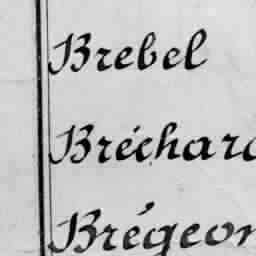 Brebel
Bréchard
Brégeon